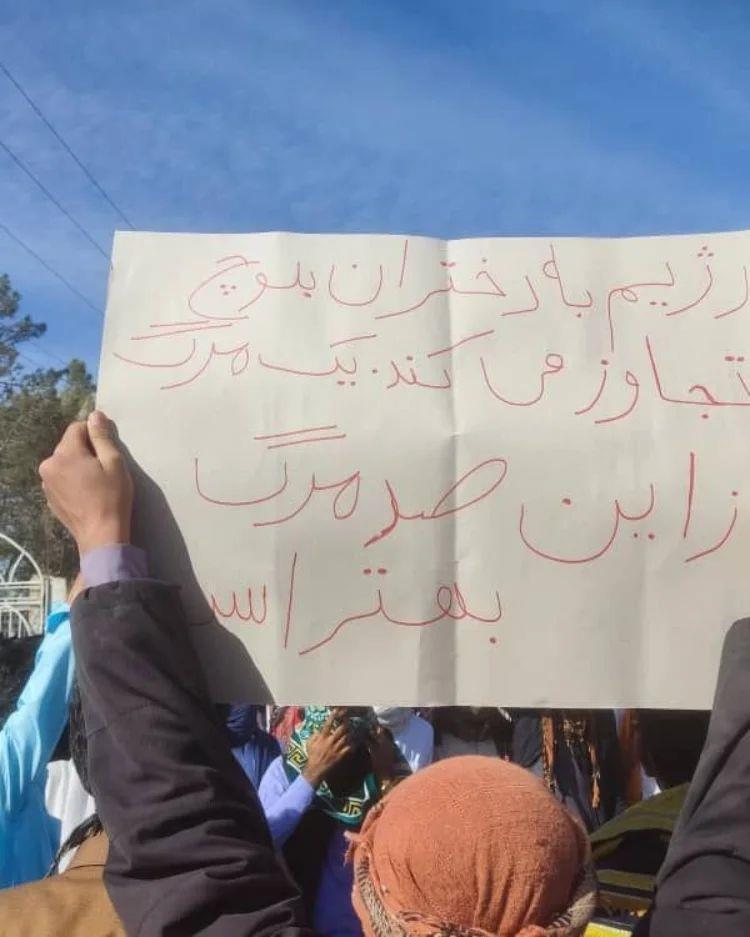 رژیم به دختران بلوچ
تجاوز می کند. یک مرگ
ز این صد مرگ
بهتر اس